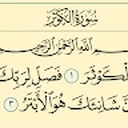 سُورَةُ الْكَوْثَرِ
بِسْمِ اللَّهِ الرَّحْمَٰنِ الرَّحِيمِ
لْكَوْثَرَ ١ فَصَلِّ لِرَبِّكَ
نَّ شَانِئَكَ هُوَ الْأَبْتَرُ ٣